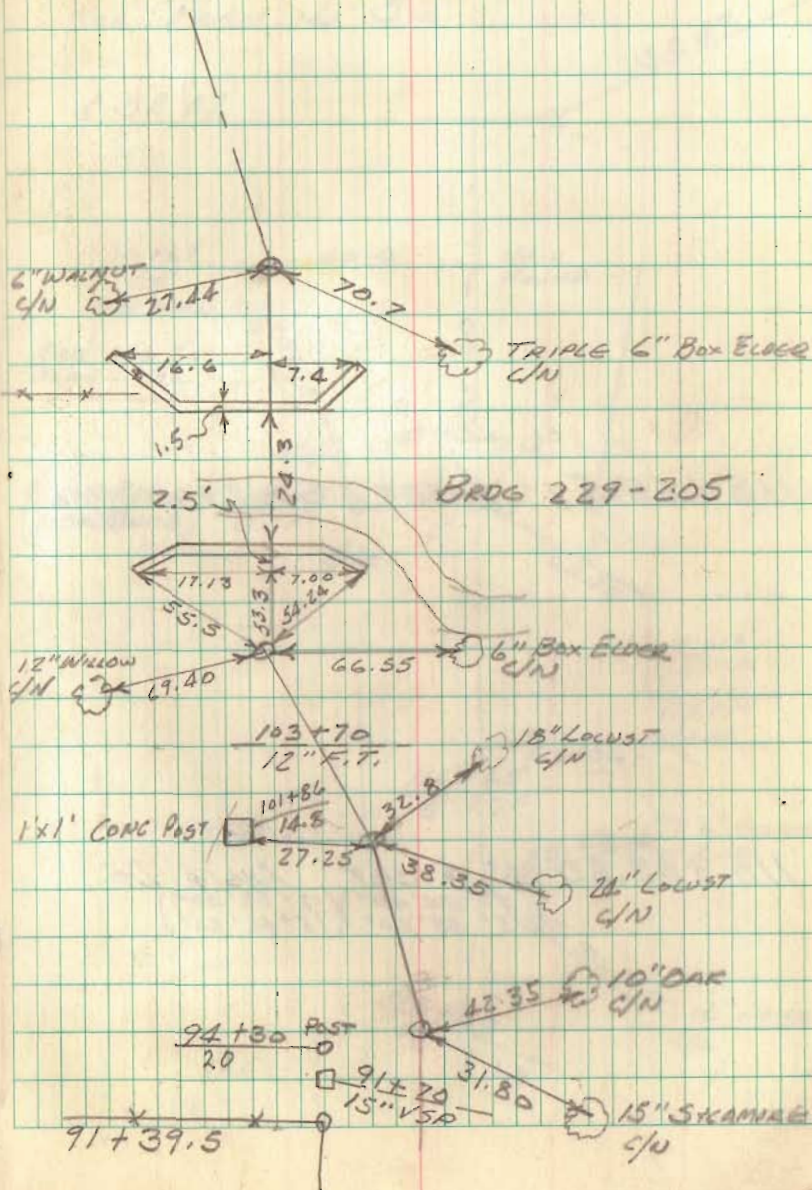 6" WALNUT
C/N
27.44
70.7
TRIPLE 6" BOX ELDER
C/N
16.6
7.4
1.5
24.3
2.5'
BRDG 229-205
17.13
7.00
55.5
53.3
54.24
12" WILLOW
C/N
69.40
66.55
6" BOX ELDER
C/N
103+70
12" F.T.
18" LOCUST
C/N
32.8
1'x1' CONC POST
101+86
14.8
27.25
38.35
LOCUST
C/N
10" OAK
C/N
42.35
94+30
20
POST
31.80
91+70
15" VSP
15" SYCAMORE
C/N
91+39.5